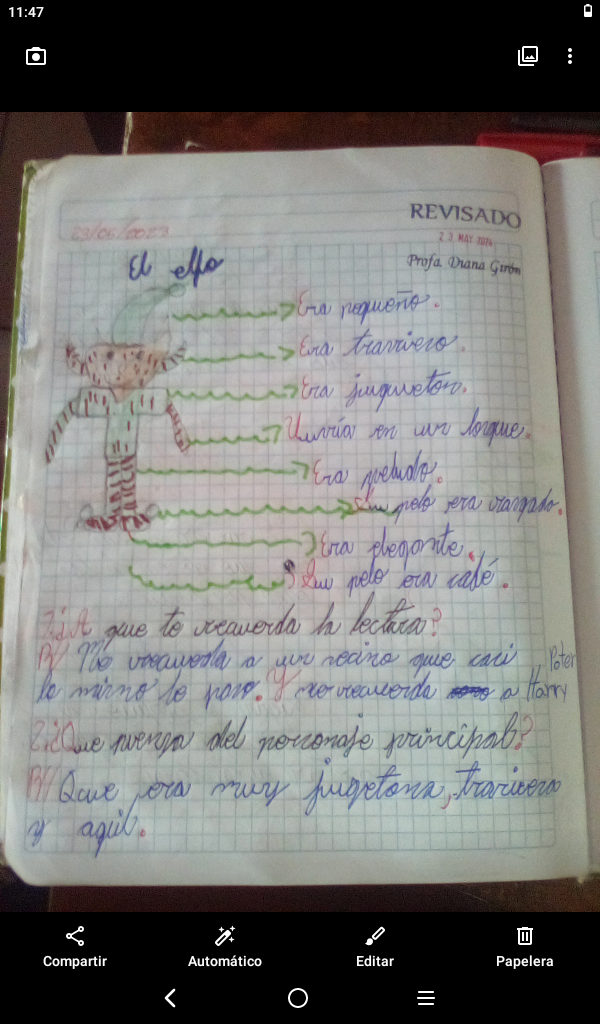 11:47
REVISADO
23/05/2023
2 3 MAY 2024
El elfo
Profa. Diana Girón
Era pequeño.
Era traviero.
Era juqueton.
Uivía en un borque.
Era peludo.
Su pelo era
Era elegante.
Su pelo era café.
1.¿A que te recuerda la lectura?
R// Me recuerda a un vecino que casi
lo mismo le paso. Y me recuerda a Harry Poter
2.¿Que piensa del personaje principal?
R// Que era muy jugetona, traviera
y agil.
Compartir
Automático
Editar
Papelera